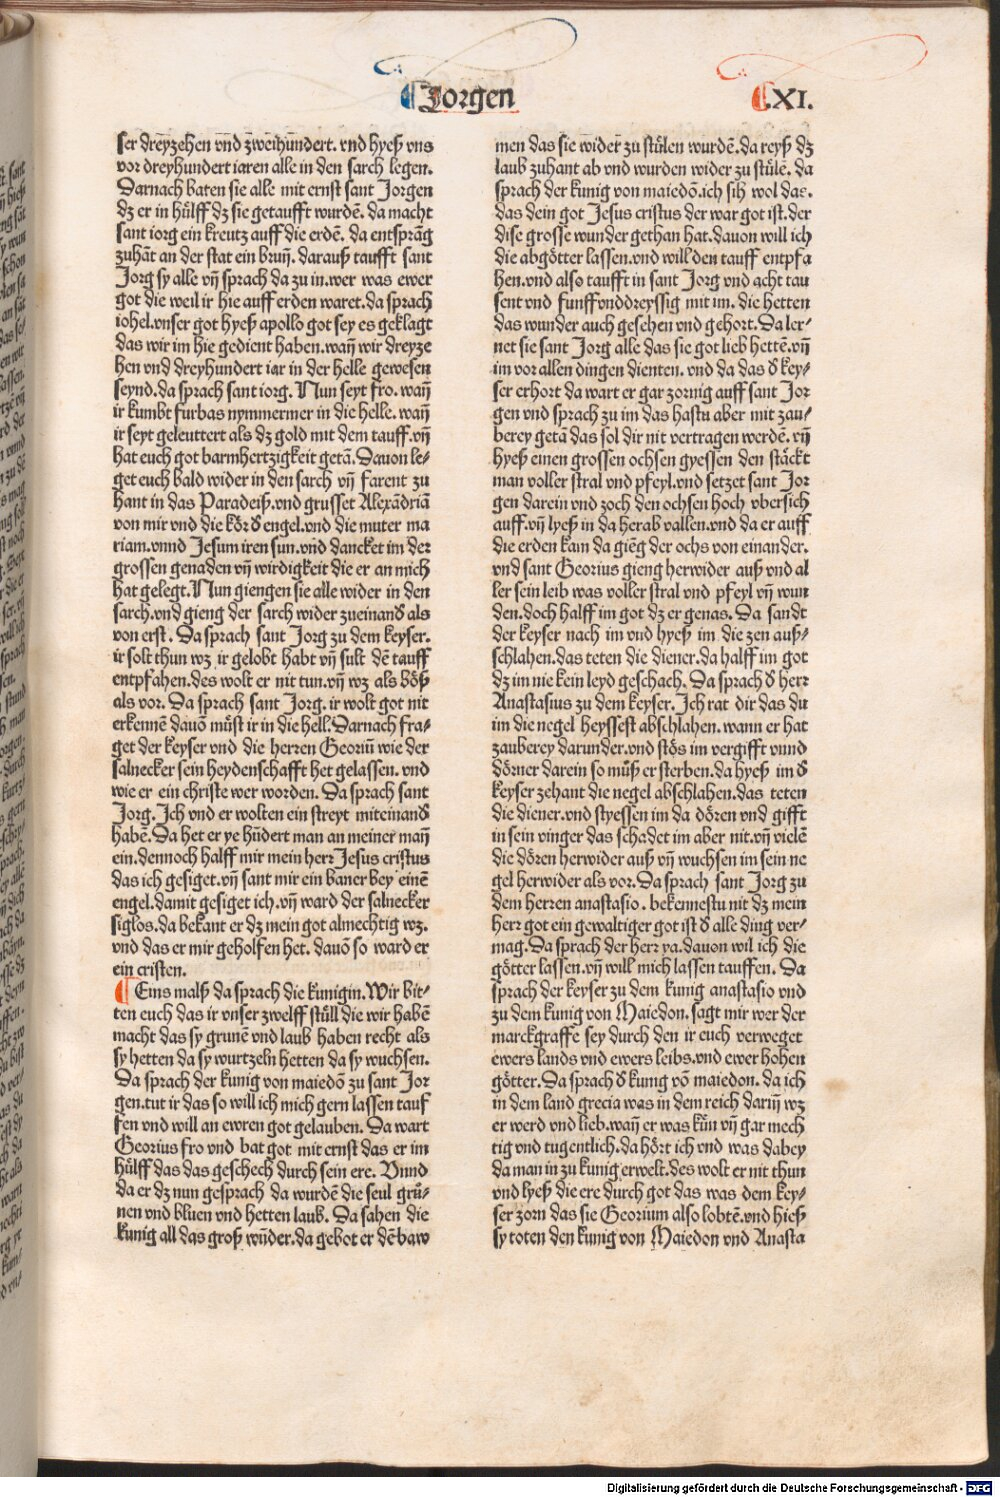 Jorgen
XI.
ser dreyzehen vnd zweihundert. vnd hyeß vns
vor dreyhundert iaren alle in den sarch legen.
Darnach baten sie alle mit ernst sant Jorgen
dz er in hülff dz sie getaufft wurdē. da macht
sant iorg ein kreutz auff die erdē. da entsprāg
zuhāt an der stat ein bruñ. darauß taufft sant
Jorg sy alle vñ sprach da zu in. wer was ewer
got die weil ir hie auff erden waret. da sprach
iohel. vnser got hyeß apollo got sey es geklagt
das wir im hie gedient haben. wañ wir dreyze
hen vnd dreyhundert iar in der helle gewesen
seynd. da sprach sant iorg. Nun seyt fro. wañ
ir kumbt furbas nymmermer in die helle. wañ
ir seyt geleuttert als dz gold mit dem tauff. vñ
hat euch got barmhertzigkeit getā. Dauon le⸗
get euch bald wider in den sarch vñ farent zu
hant in das Paradeiß. vnd grusset Alexādriā
von mir vnd die kör đ engel. vnd die muter ma
riam. vnnd Jesum iren sun. vnd dancket im der
grossen genaden vñ wirdigkeit die er an mich
hat gelegt. Nun giengen sie alle wider in den
sarch. vnd gieng der sarch wider zueinand als
von erst. Da sprach sant Jorg zu dem keyser.
ir solt thun wz ir gelobt habt vñ sult dē tauff
entpfahen. des wolt er nit tun. vñ wz als böß
als vor. Da sprach sant Jorg. ir wolt got nit
erkennē dauō müst ir in die hell. Darnach fra⸗
get der keyser vnd die herren Georiū wie der
salnecker sein heydenschafft het gelassen. vnd
wie er ein christē wer worden. Da sprach sant
Jorg. Ich vnd er wolten ein streyt miteinand
habē. Da het er ye hūdert man an meiner mañ
ein. dennoch halff mir mein herr Jesus cristus
das ich gesiget. vñ sant mir ein baner bey einē
engel. damit gesiget ich. vñ ward der salnecker
siglos. da bekant er dz mein got almechtig wz.
vnd das er mir geholfen het. dauō so ward er
ein cristen.
Eins malß da sprach die kunigin. Wir bit⸗
ten euch das ir vnser zwelff stüll die wir habē
macht das sy grunē vnd laub haben recht als
sy hetten da sy wurtzeln hetten da sy wuchsen.
Da sprach der kunig von maiedō zu sant Jor
gen. tut ir das so will ich mich gern lassen tauf
fen vnd will an ewren got gelauben. Da wart
Georius fro vnd bat got mit ernst das er im
hülff das das geschech durch sein ere. Vnnd
da er dz nun gesprach da wurdē die seul grü⸗
nen vnd bluen vnd hetten laub. Da sahen die
kunig all das groß wūder. da gebot er dē baw
men das sie wider zu stülen wurdē. da reyß dz
laub zuhant ab vnd wurden wider zu stülē. da
sprach der kunig von maiedō. ich sih wol das.
das dein got Jesus cristus der war got ist. der
dise grosse wunder gethan hat. dauon will ich
die abgötter lassen. vnd will den tauff entpfa
hen. vnd also taufft in sant Jorg vnd acht tau
sent vnd funffvnddreyssig mit im. die hetten
das wunder auch gesehen vnd gehort. Da ler⸗
net sie sant Jorg alle das sie got lieb hettē. vñ
im vor allen dingen dienten. vnd da das đ key⸗
ser erhort da wart er gar zornig auff sant Jor
gen vnd sprach zu im das hastu aber mit zau⸗
berey getā das sol dir nit vertragen werdē. vñ
hyeß einen grossen ochsen gyessen den stäckt
man voller stral vnd pfeyl. vnd setzet sant Jor
gen darein vnd zoch den ochsen hoch vbersich
auff. vñ lyeß in da herab vallen. vnd da er auff
die erden kam da giēg der ochs von einander.
vnd sant Georius gieng herwider auß vnd al
ler sein leib was voller stral vnd pfeyl vñ wun
den. doch halff im got dz er genas. Da sandt
der keyser nach im vnd hyeß im die zen auß⸗
schlahen. das teten die diener. da halff im got
dz im nie kein leyd geschach. Da sprach đ herr
Anastasius zu dem keyser. Ich rat dir das du
im die negel heyssest abschlahen. wann er hat
zauberey darunder. vnd stös im vergifft vnnd
dörner darein so müß er sterben. da hyeß im đ
keyser zehant die negel abschlahen. das teten
die diener. vnd styessen im da dören vnd gifft
in sein vinger das schadet im aber nit. vñ vielē
die dören herwider auß vñ wuchsen im sein ne
gel herwider als vor. Da sprach sant Jorg zu
dem herren anastasio. bekennestu nit dz mein
herr got ein gewaltiger got ist đ alle ding ver⸗
mag. Da sprach der herr ya. dauon wil ich die
götter lassen. vñ will mich lassen tauffen. Da
sprach der keyser zu dem kunig anastasio vnd
zu dem kunig von Maiedon. sagt mir wer der
marckgraffe sey durch den ir euch verweget
ewers lands vnd ewers leibs. vnd ewer hohen
götter. Da sprach đ kunig vō maiedon. da ich
in dem land grecia was in dem reich dariñ wz
er werd vnd lieb. wañ er was kün vñ gar mech
tig vnd tugentlich. da hört ich vnd was dabey
da man in zu kunig erwelt. des wolt er nit thun
vnd lyeß die ere durch got das was dem key⸗
ser zorn das sie Georium also lobtē. vnd hieß
sy toten den kunig von Maiedon vnd Anasta
Digitalisierung gefördert durch die Deutsche Forschungsgemeinschaft - DFG